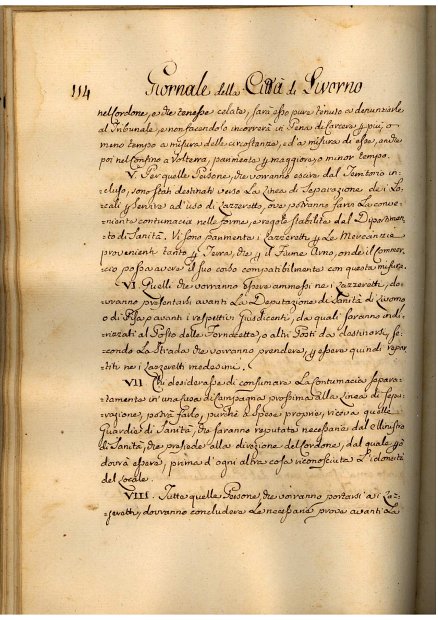 114 Giornale della Città di Livorno
nel Cordone, e che tenesse celate, sarà esso pure tenuto a denunziarle
al Tribunale, e non facendolo incorrerà in Pena di Carcere p. più, o
meno tempo a misura delle circostanze, ed a misura di esse, anche
poi nel Confino a Volterra, parimente p. maggiore, o minor tempo.
V. Per quelle Persone, che vorranno escire dal Territorio in-
cluso, sono stati destinati verso La Linea di Separazione dei Lo-
cali p. Servire ad uso di Lazzeretto, ove potranno fare La conve-
niente contumacia nelle forme, e regole stabilite dal Dipartimen-
to di Sanità. Vi sono parimente i Lazzeretti p. Le Mercanzie
provenienti tanto p. Terra, che p. il Fiume Arno, onde il Commer-
cio possa avere il suo corso compatibilmente con questa misura.
VI. Quelli che vorranno essere ammessi nei Lazzeretti, do-
vranno presentarsi avanti La Deputazione di Sanità di Livorno
o di Pisa, o avanti i respettivi Giusdicenti, da quali saranno indi-
rizzati al Posto delle Fornacette, o altri Posti da destinarsi, se-
condo La Strada che vorranno prendere, p. essere quindi repar-
titi nei Lazzeretti medesimi.
VII. Chi desiderasse di consumare La Contumacia separa-
tamente in una Casa di Campagna prossima alla Linea di Sepa-
razione, potrà farlo, purchè a Spese proprie, riceva quelle
Guardie di Sanità, che saranno reputate necessarie dal Ministro
di Sanità, che presiede alla direzione del Cordone, dal quale però
dovrà essere, prima d'ogni altra cosa riconosciuta L'idoneità
del Locale.
VIII. Tutte quelle Persone, che vorranno portarsi ai Laz-
zeretti, dovranno concludere Le necessarie prove avanti La